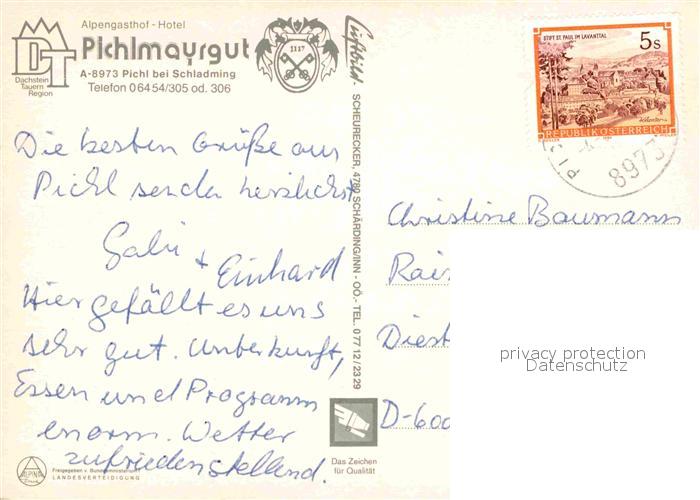 Alpengasthof - Hotel
Pichlmayrgut
A-8973 Pichl bei Schladming
Telefon 06454/305 od. 306
DT
Dachstein
Tauern
Region
1117
Luftbild - SCHEURECKER, 4780 SCHÄRDING/INN - OÖ.- TEL. 07712/2329
STIFT ST. PAUL IM LAVANTTAL
5s
REPUBLIK ÖSTERREICH
8973
Die besten Grüße aus
Pichl senden herzlichst
Gabi
+ Einhard
Hier gefällt es uns
sehr gut. Unterkunft,
Essen und Programm
enorm. Wetter
zufriedenstellend.
Christine Baumann
D-600
privacy protection
Datenschutz
Das Zeichen
für Qualität
ALPINA
Freigegeben v. Bundesministerium f.
LANDESVERTEIDIGUNG